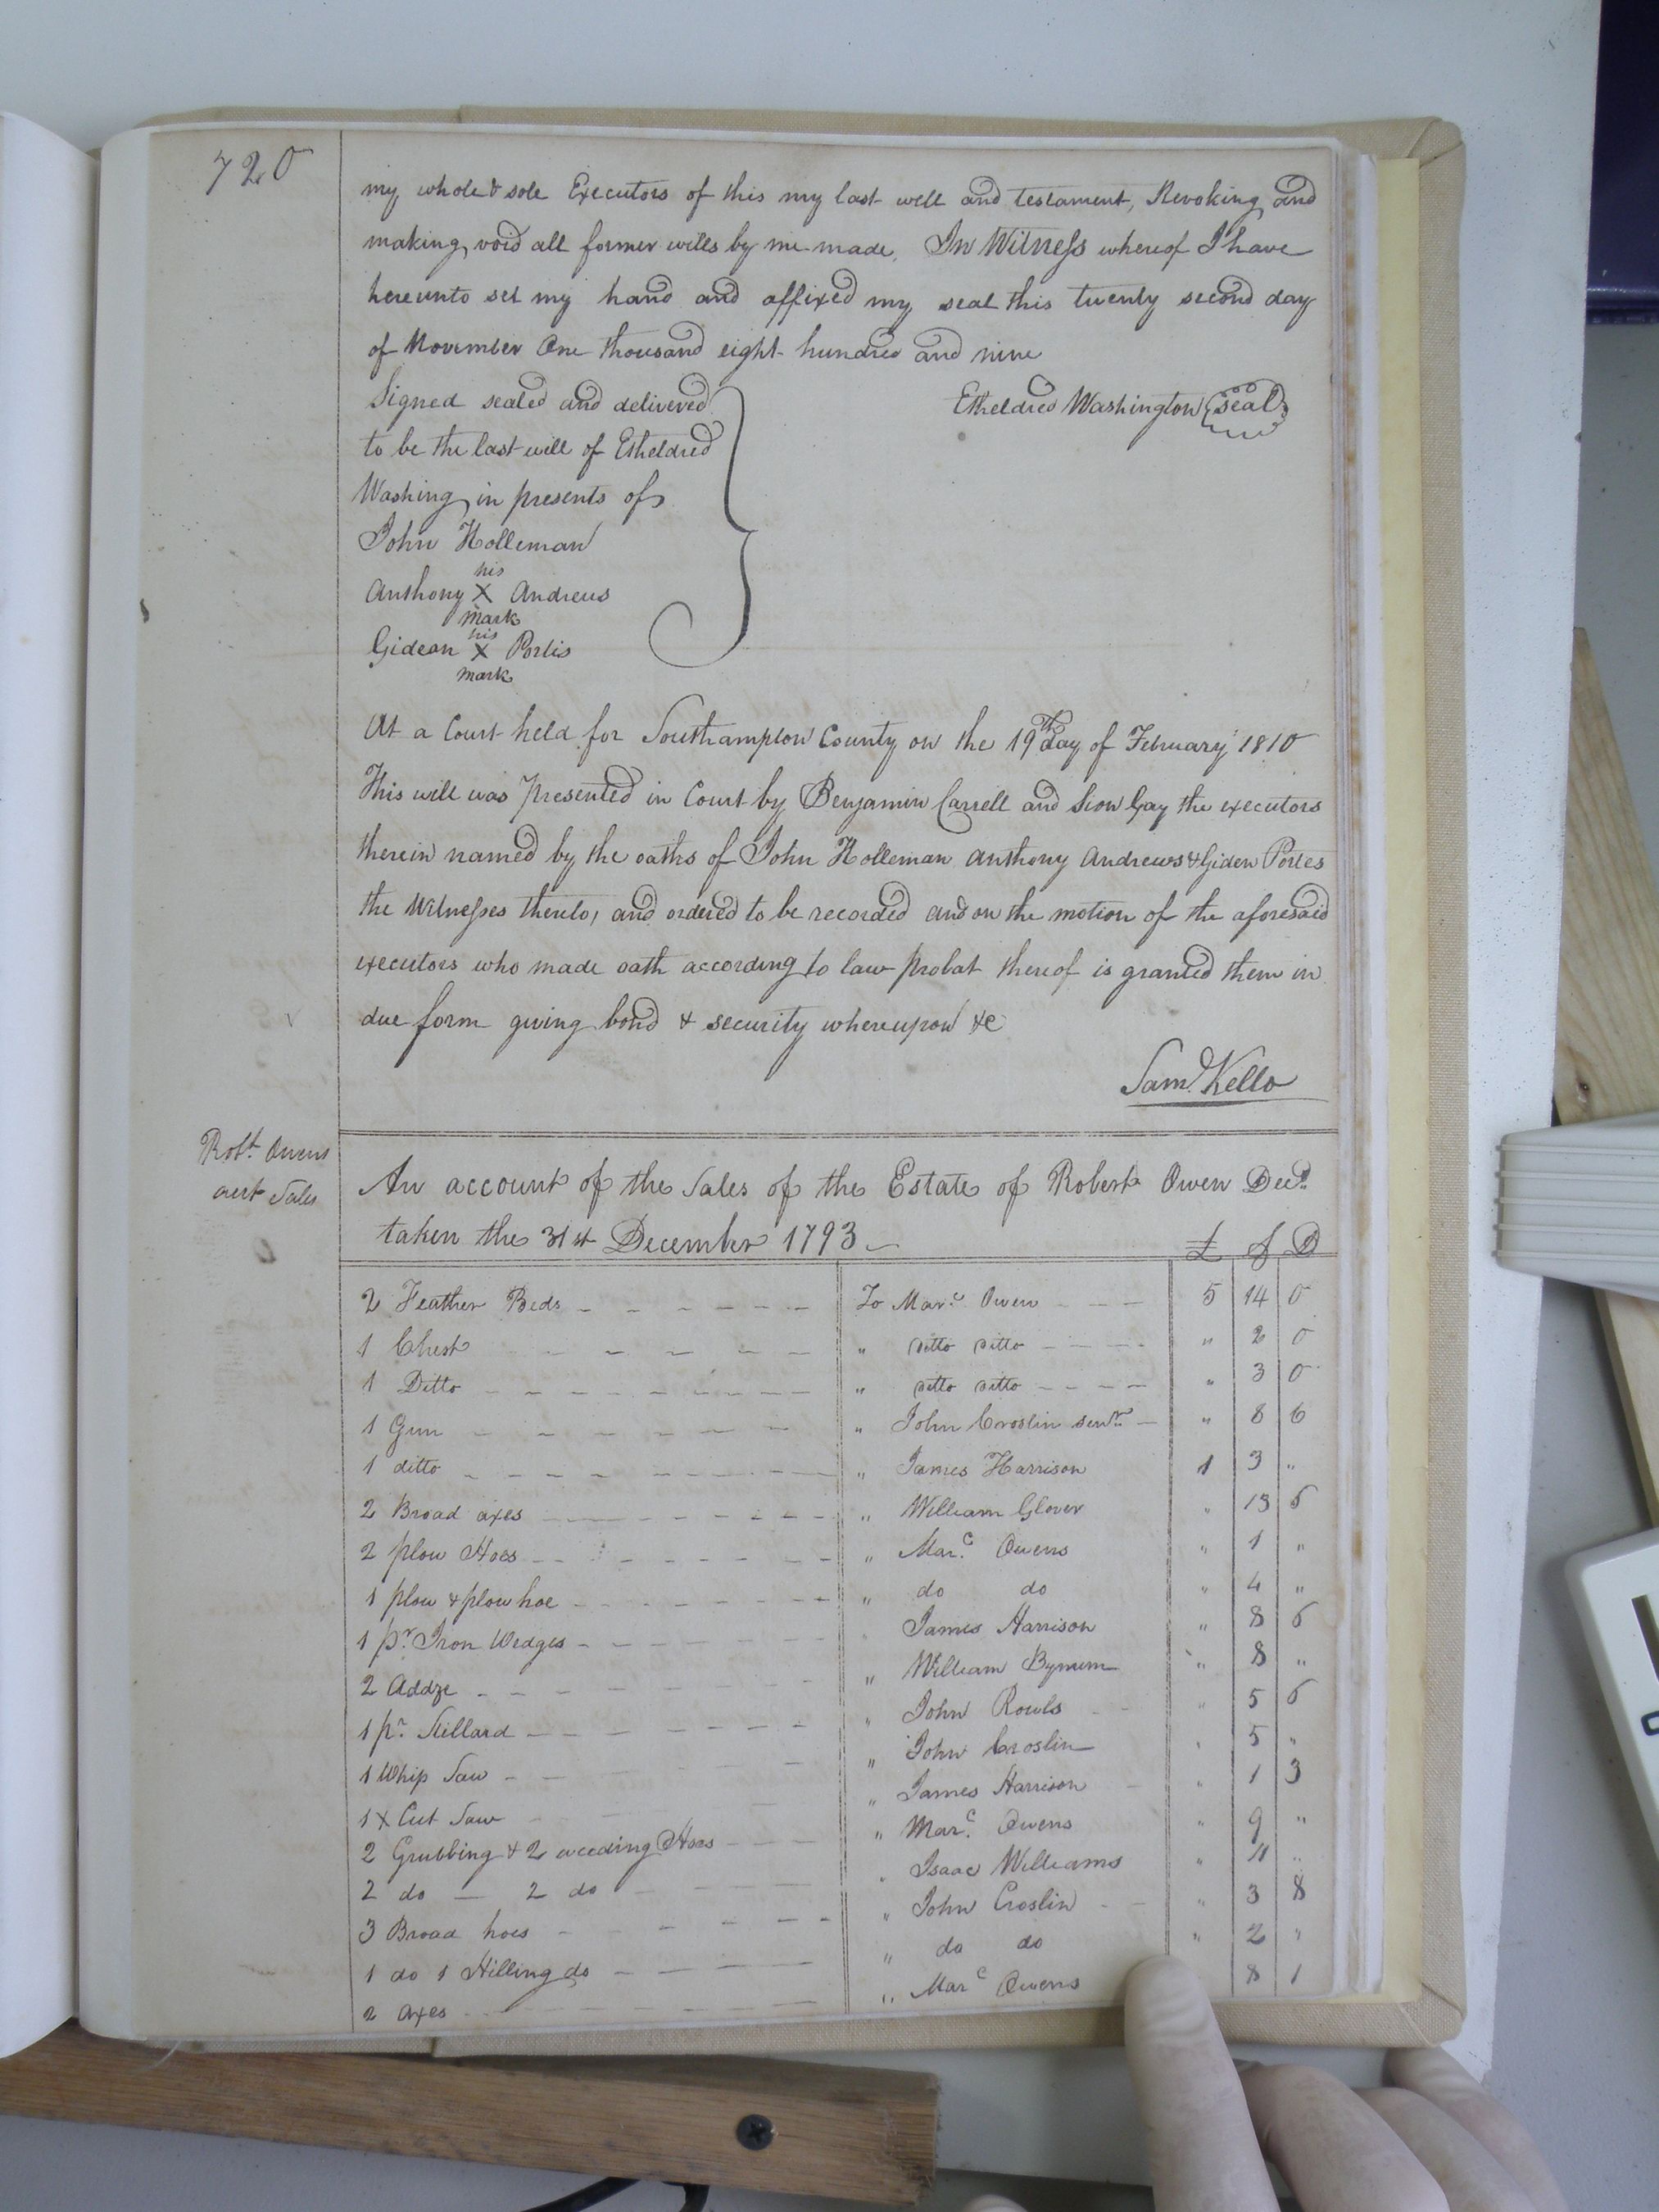 720
my whole & sole Executors of this my last will and testament, Revoking and
making void all former wills by me made, In Witness whereof I have
hereunto set my hand and affixed my seal this twenty second day
of November One thousand eight hundred and nine
Signed sealed and delivered
Etheldred Washington seal
to be the last will of Etheldred
Washing in presents of
John Holleman
his
Anthony X Andrews
mark
his
Gideon X Portis
mark
At a Court held for Southampton County on the 19th day of February 1810
This will was presented in Court by Benjamin Carrell and Sion Gay the executors
therein named by the oaths of John Holleman Anthony Andrews & Giden Portes
the Witnesses thereto, and ordered to be recorded and on the motion of the aforesaid
executors who made oath according to law probat thereof is granted them in
due form giving bond & security whereupon &c
Saml. Kello
Robt. Owens
acct Sales
An account of the Sales of the Estate of Robert Owen Decd.
taken the 31st December 1793
£ S D
2 Feather Beds To Marc. Owen 5 14 0
1 Chest " ditto ditto " 2 0
1 Ditto " ditto ditto " 3 0
1 Gun " John Croslin senr. " 8 6
1 ditto " James Harrison 1 3 "
2 Broad axes " William Glover " 13 6
2 plow Hoes " Marc. Owens " 1 "
1 plow & plow hoe " do do " 4 "
1 pr. Iron Wedges James Harrison " 8 6
2 Addze " William Bynum " 8 "
1 pr. Stillard " John Rowls " 5 6
1 Whip Saw " John Croslin " 5 "
1 X Cut Saw " James Harrison " 1 3
2 Grubbing & 2 weeding Hoes " Marc. Owens " 9 "
2 do 2 do " Isaac Williams " 11 "
3 Broad hoes " John Croslin " 3 8
1 do 1 Hilling do " do do " 2 "
2 Axes " Marc Owens 8 1